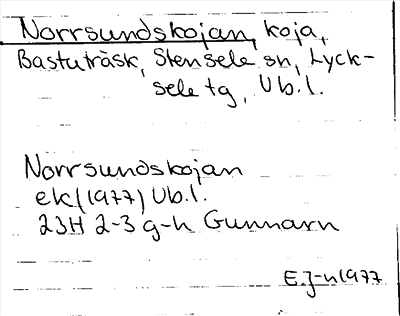 Norrsundskojan, koja,
Bastuträsk, Stensele sn, Lyck-
sele tg, Vb.l.
Norrsundskojan
ek (1977) Vb.l.
23H 2-3 g-h Gunnarn
E.J-n 1977